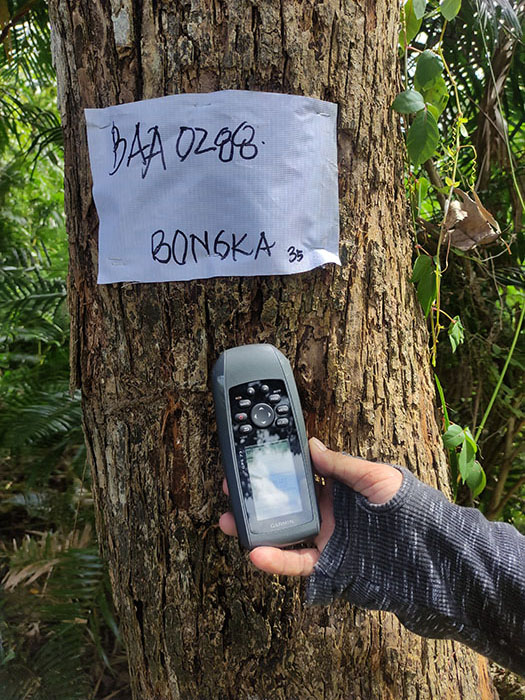 BAA 0288.
BONGKA 35
GARMIN